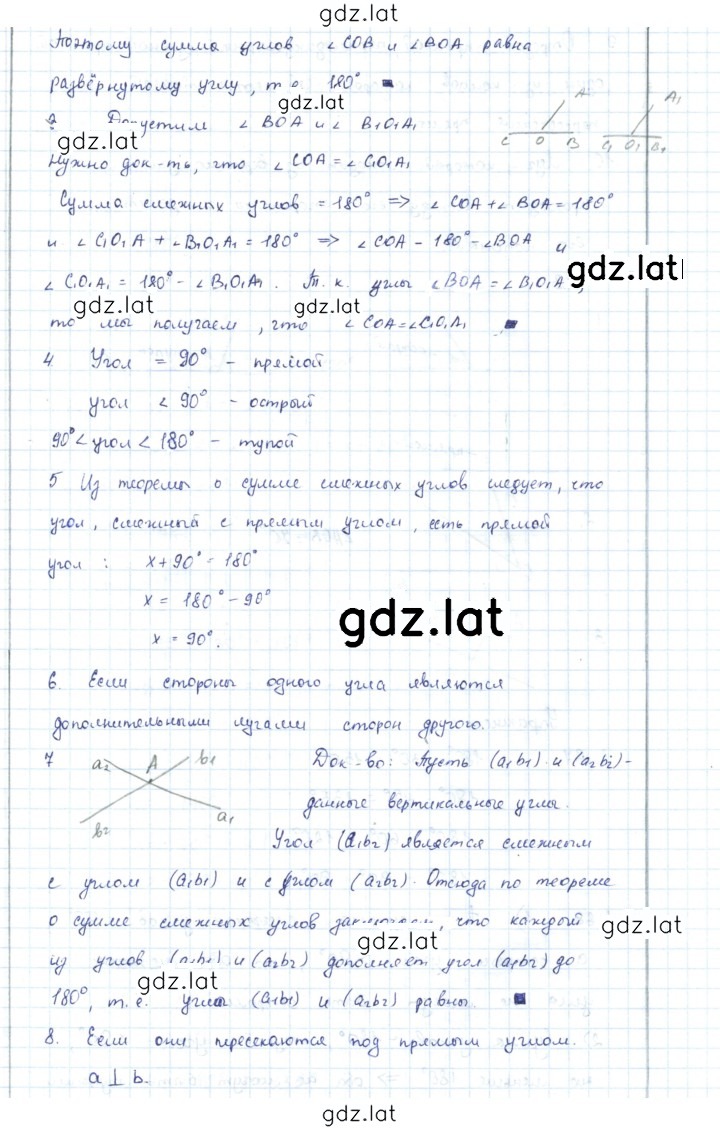 gdz.lat
Поэтому сумма углов ∠COB и ∠BOA равна
развёрнутому углу, т.е. 180° ■
gdz.lat
A A1
3 Допустим ∠BOA и ∠B1O1A1
C O B C1 O1 B1
gdz.lat
Нужно док-ть, что ∠COA = ∠C1O1A1
Сумма смежных углов = 180° => ∠COA + ∠BOA = 180°
и ∠C1O1A + ∠B1O1A1 = 180° => ∠COA - 180° - ∠BOA и
gdz.lat
∠C1O1A1 = 180° - ∠B1O1A1. Т.к. углы ∠BOA = ∠B1O1A,
gdz.lat gdz.lat
то мы получаем, что ∠COA = ∠C1O1A1 ■
4 Угол = 90° - прямой
угол < 90° - острый
90° < угол < 180° - тупой
5 Из теоремы о сумме смежных углов следует, что
угол, смежный с прямым углом, есть прямой
угол : x + 90° = 180°
x = 180° - 90°
gdz.lat
x = 90°.
6. Если стороны одного угла являются
дополнительными лучами сторон другого.
7 a2 A b1 Док-во: Пусть (a1b1) и (a2b2)-
b2 a1 данные вертикальные углы.
Угол (a1b2) является смежным
с углом (a1b1) и с углом (a2b2). Отсюда по теореме
о сумме смежных углов что каждый
gdz.lat
gdz.lat
из углов (a1b1) и (a2b2) дополняет угол (a1b2) до
gdz.lat
180°, т.е. углы (a1b1) и (a2b2) равны ■
8. Если они пересекаются под прямым углом.
a ⊥ b.
gdz.lat